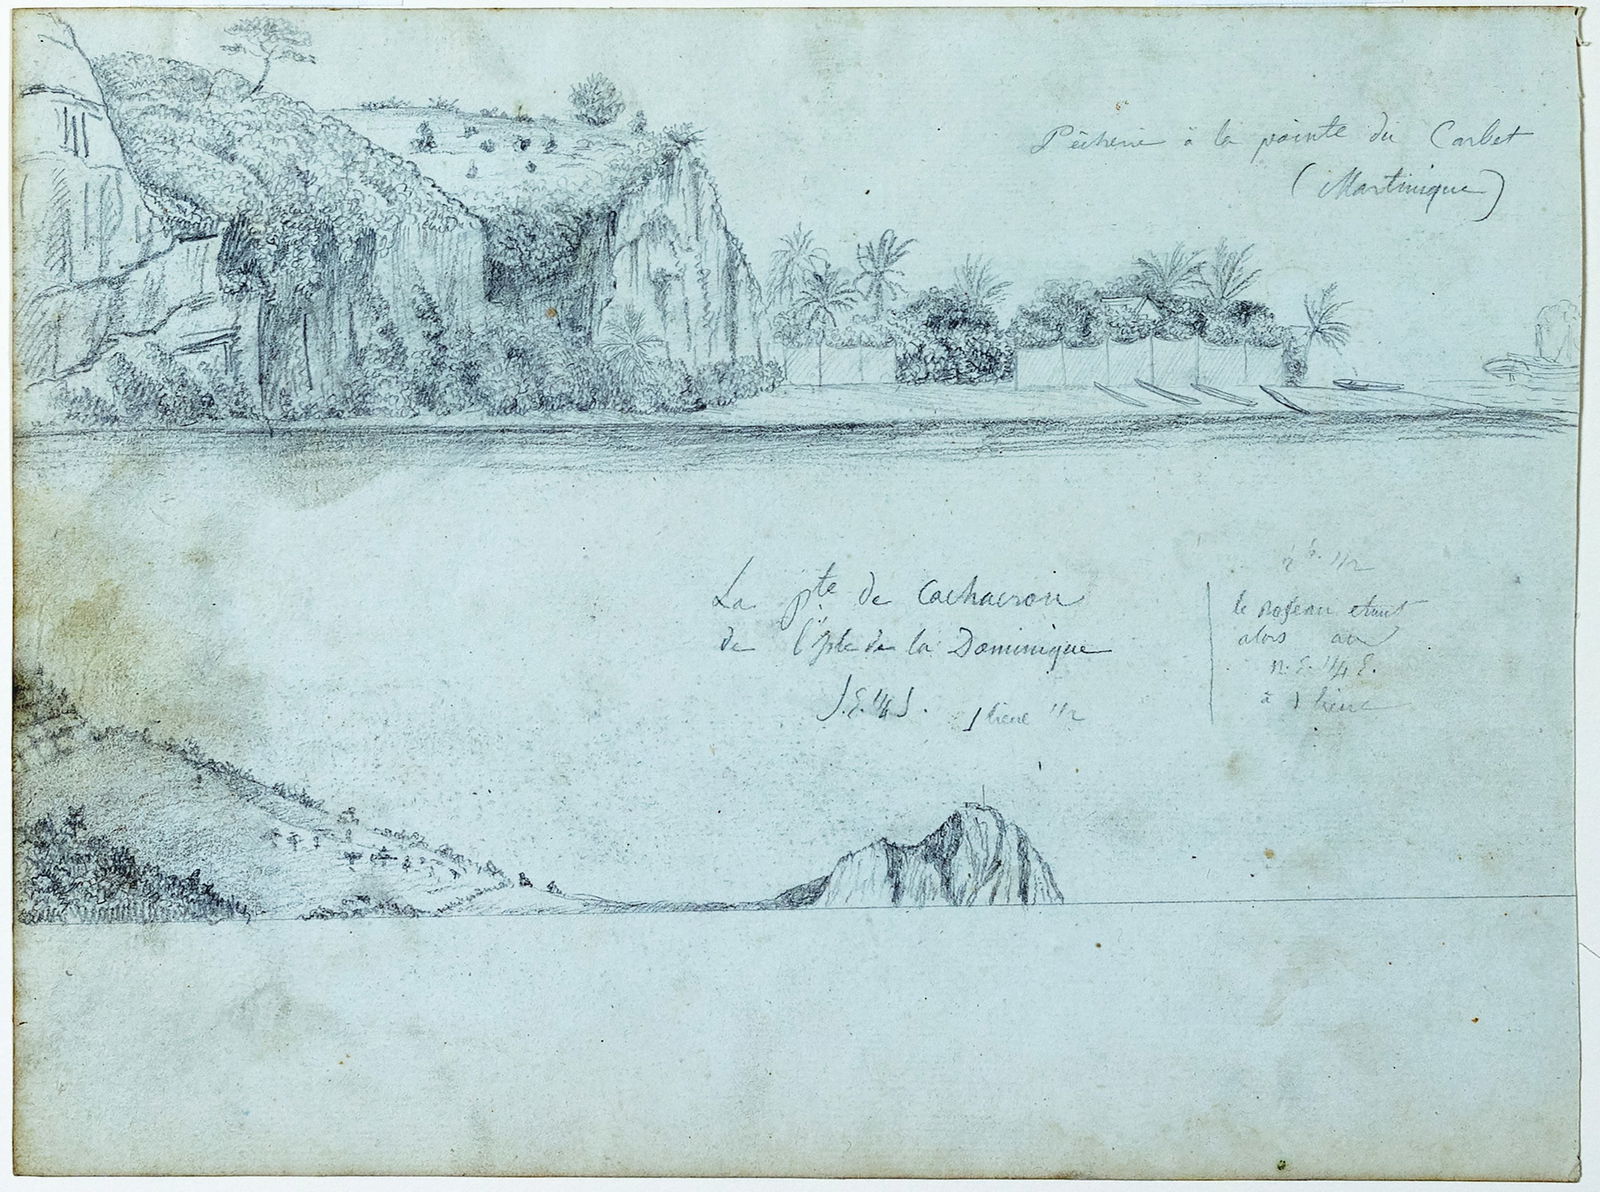 Pêcherie à la pointe du Carbet
(Martinique)
La pte de Cachacrou
de l'Isle de la Dominique
S.E. 1/4 S. 1 lieue 1/2
2 h. 1/2
le Roseau étant
alors au
N.E. 1/4 E.
à 1 lieue